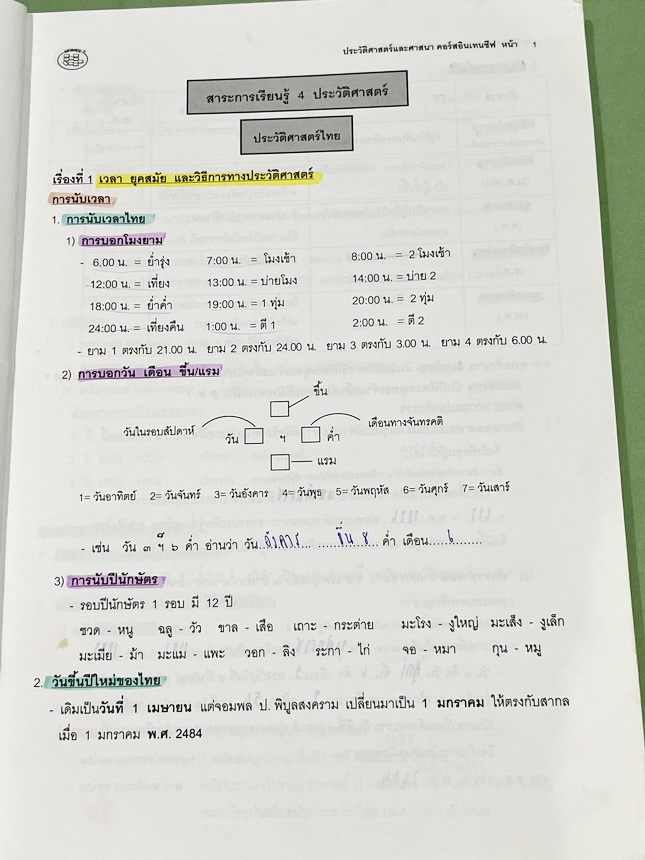 ประวัติศาสตร์และศาสนา คอร์สอินเทนซีฟ หน้า 1
สาระการเรียนรู้ 4 ประวัติศาสตร์
ประวัติศาสตร์ไทย
เรื่องที่ 1 เวลา ยุคสมัย และวิธีการทางประวัติศาสตร์
การนับเวลา
1. การนับเวลาไทย
1) การบอกโมงยาม
- 6.00 น. = ย่ำรุ่ง 7:00 น. = โมงเช้า 8:00 น. = 2 โมงเช้า
12:00 น. = เที่ยง 13:00 น. = บ่ายโมง 14:00 น. = บ่าย 2
18:00 น. = ย่ำค่ำ 19:00 น. = 1 ทุ่ม 20:00 น. = 2 ทุ่ม
24:00 น. = เที่ยงคืน 1:00 น. = ตี 1 2:00 น. = ตี 2
- ยาม 1 ตรงกับ 21.00 น. ยาม 2 ตรงกับ 24.00 น. ยาม 3 ตรงกับ 3.00 น. ยาม 4 ตรงกับ 6.00 น.
2) การบอกวัน เดือน ขึ้น/แรม
ขึ้น
วันในรอบสัปดาห์ เดือนทางจันทรคติ
วัน ฯ ค่ำ
แรม
1= วันอาทิตย์ 2= วันจันทร์ 3= วันอังคาร 4= วันพุธ 5= วันพฤหัส 6= วันศุกร์ 7= วันเสาร์
- เช่น วัน ๓ ฯ ๖ ค่ำ อ่านว่า วัน อังคาร ขึ้น ๘ ค่ำ เดือน ๖
3) การนับปีนักษัตร
- รอบปีนักษัตร 1 รอบ มี 12 ปี
ชวด - หนู ฉลู - วัว ขาล - เสือ เถาะ - กระต่าย มะโรง - งูใหญ่ มะเส็ง - งูเล็ก
มะเมีย - ม้า มะแม - แพะ วอก - ลิง ระกา - ไก่ จอ - หมา กุน - หมู
2. วันขึ้นปีใหม่ของไทย
- เดิมเป็นวันที่ 1 เมษายน แต่จอมพล ป. พิบูลสงคราม เปลี่ยนมาเป็น 1 มกราคม ให้ตรงกับสากล
เมื่อ 1 มกราคม พ.ศ. 2484